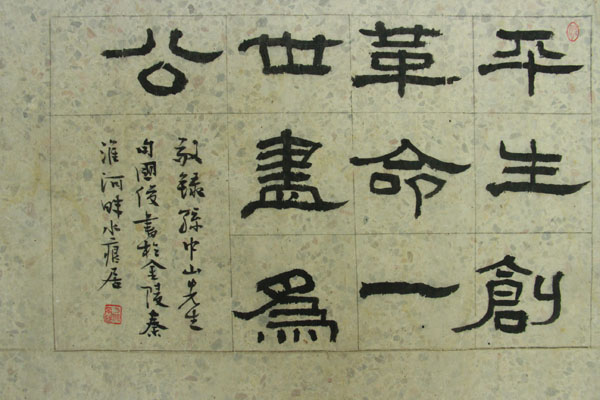 平生創
革命一
世盡為
公
敬錄孫中山先生
句國俊書於金陵秦
淮河畔水痕居